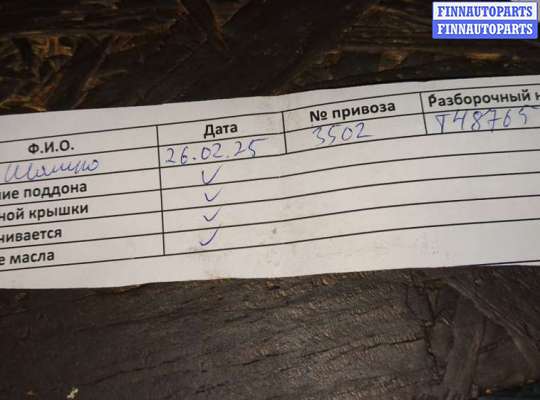 FINNAUTOPARTS
FINNAUTOPARTS
Ф.И.О. Дата № привоза Разборочный н
26.02.25 3502 T48765
ние поддона ✓
ной крышки ✓
ивается ✓
е масла ✓